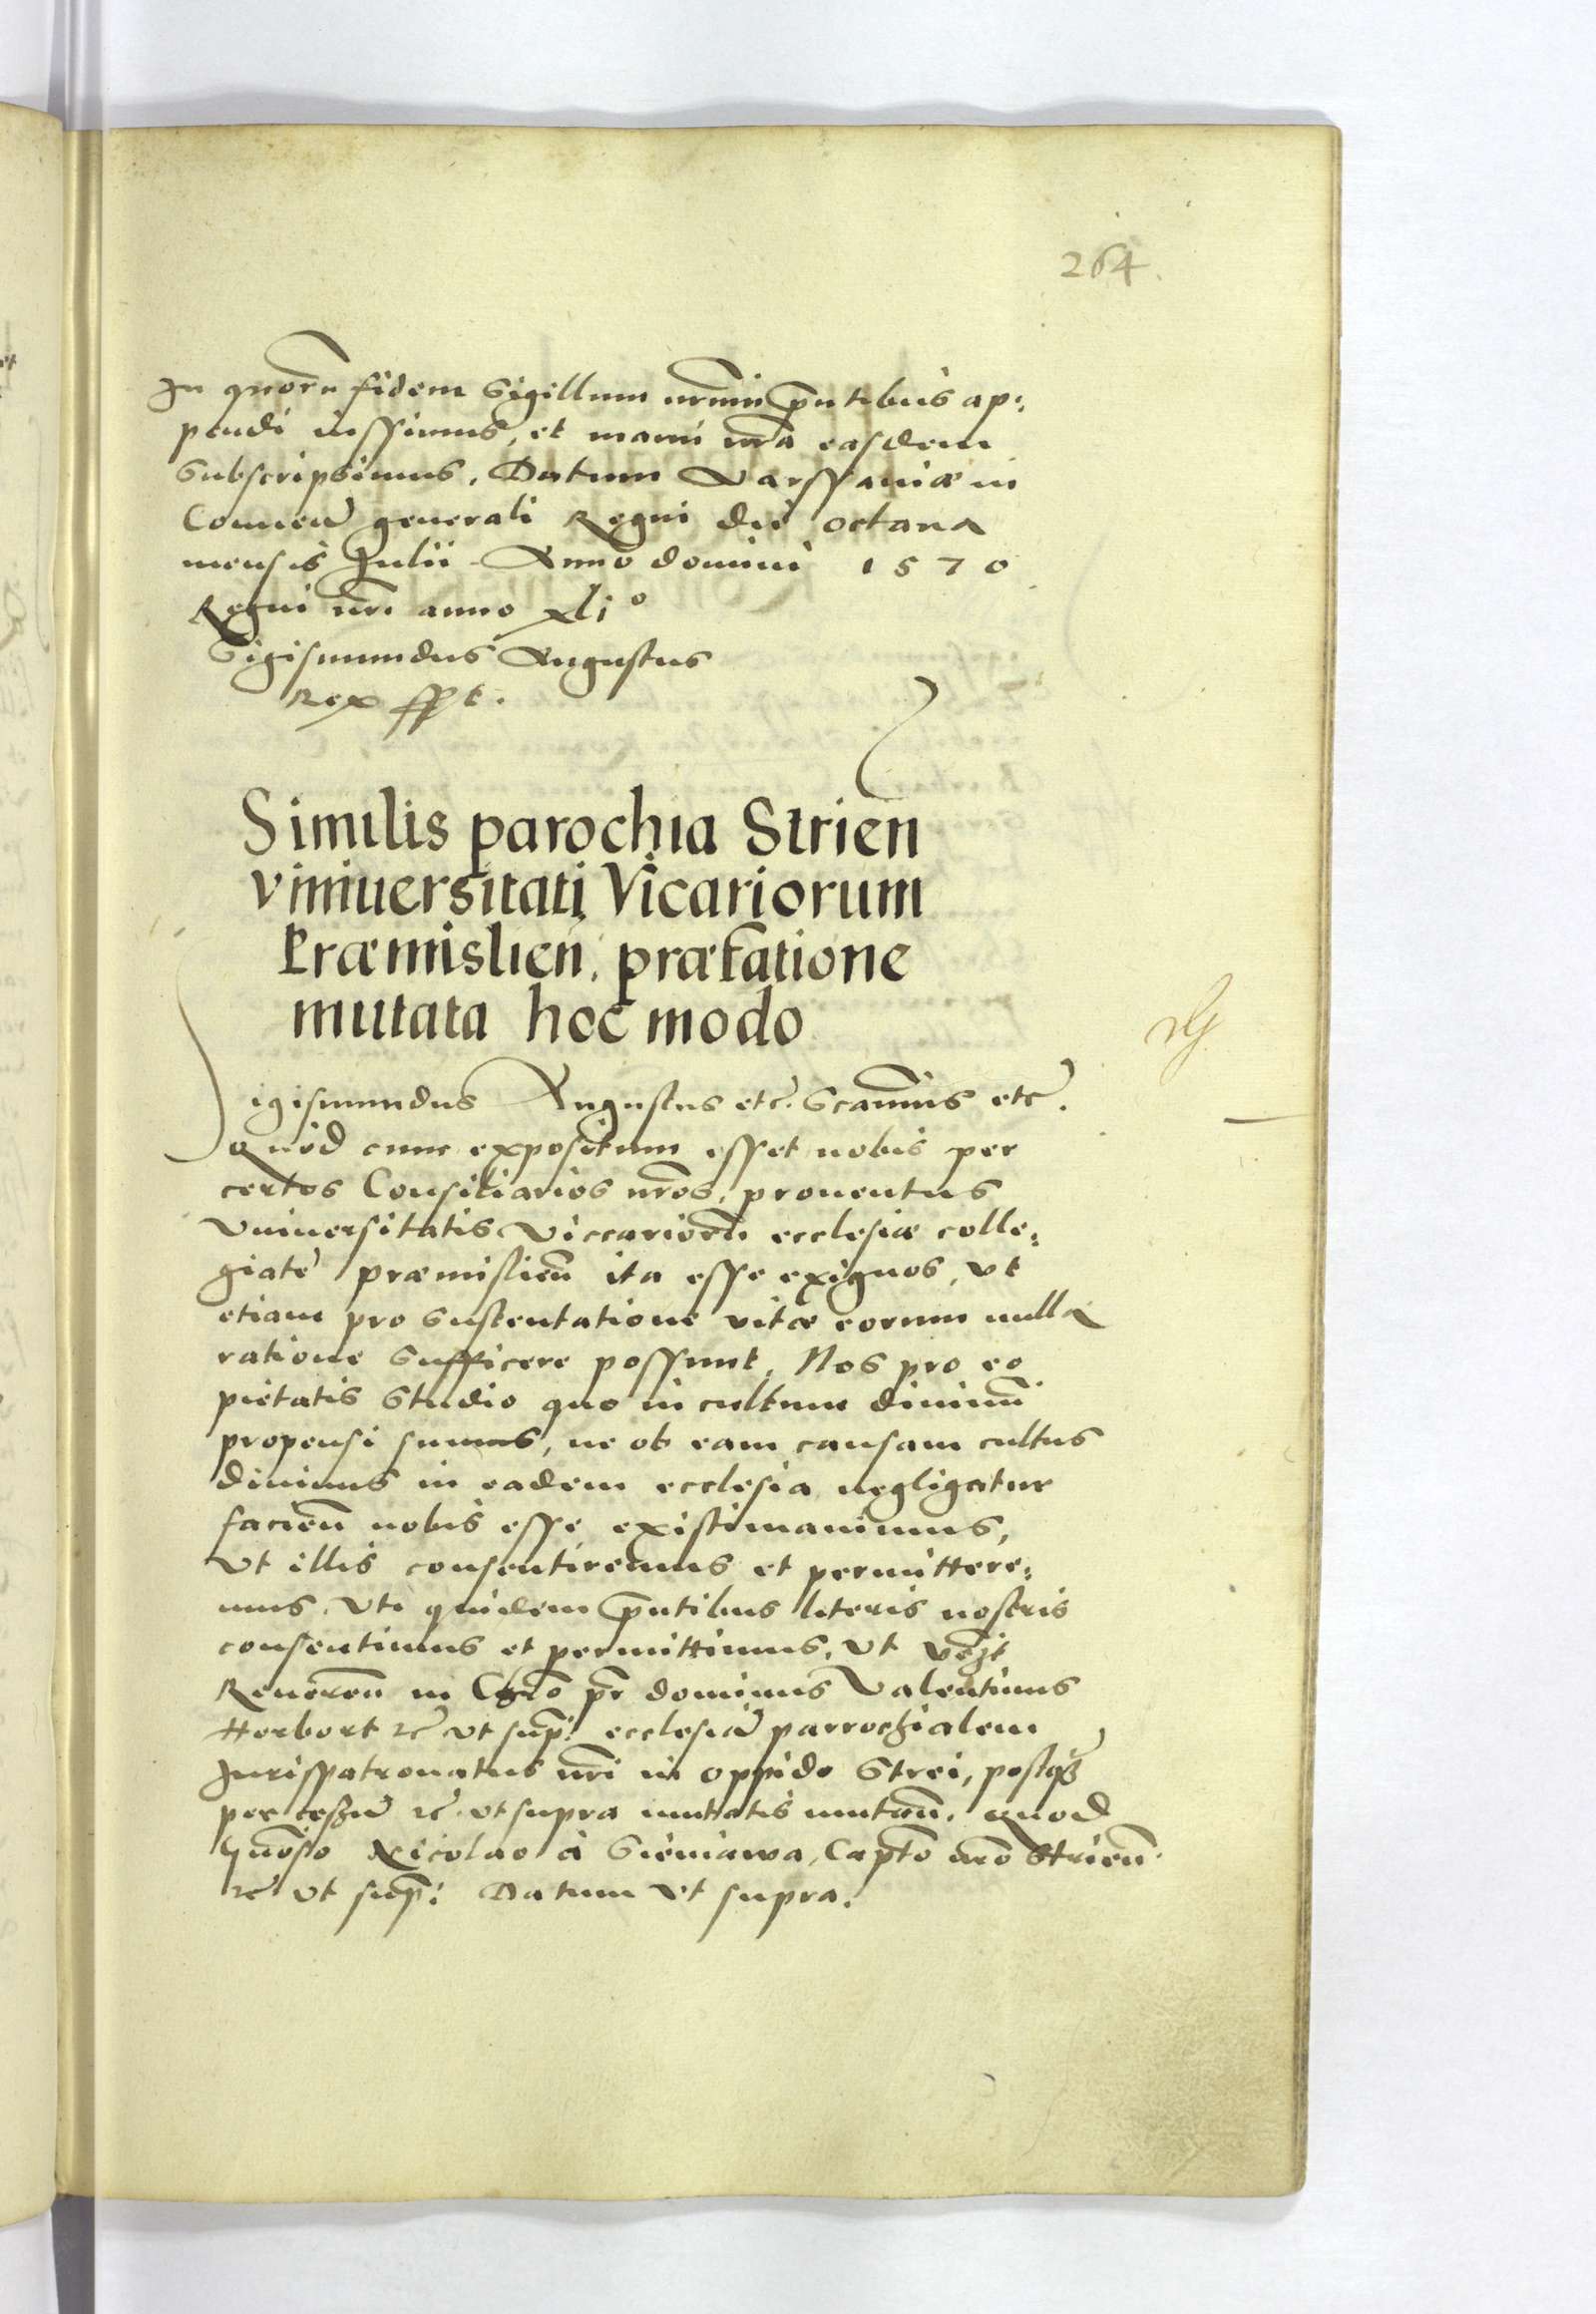 264
In quorũ fidem Sigillum nrũm p̃ntibus ap:
pendi iussimus, et manu nrã easdem
subscripsimus. Datum Varssauiæ in
Conuen̄ generali Regni die octaua
mensis Julii Anno domini 1570
Regni nrĩ anno xli°
Sigismundus Augustus
Rex sspt.
Similis parochia Strien
vniuersitati Vicariorum
Præmislien. præfatione
mutata hoc modo
Sigismundus Augustus etc. Scañus etc.
Quod cum expositum esset nobis per
certos Consiliarios nrõs, prouentus
Vniuersitatis Viccariorũ ecclesiæ colle:
giatę præmislien̄ ita esse exiguos, vt
etiam pro sustentatione vitæ eorum nulla
ratione sufficere possunt, Nos pro eo
pietatis studio quo in cultum diuinũ
propensi sumus, ne ob eam causam cultus
diuinus in eadem ecclesia negligatur
facien̄ nobis esse existimauimus,
Vt illis consentiremus et permittere:
mus. Vti quidem p̃ntibus literis nostris
consentimus et permittimus, Vt
Reueren̄ in Chrõ pr̃ dominus Valentinus
Herbort etc̃ vt sup̃: ecclesiã parrochialem
Jurispatronatus nrĩ in oppido Strei, postq̃
per cessũ etc̃. vt supra mutatis mutan̄. Quod
Gnõso Nicolao à Sieniawa, Capt̃o nrõ Strien̄.
etc̃ vt sup̃: Datum vt supra.